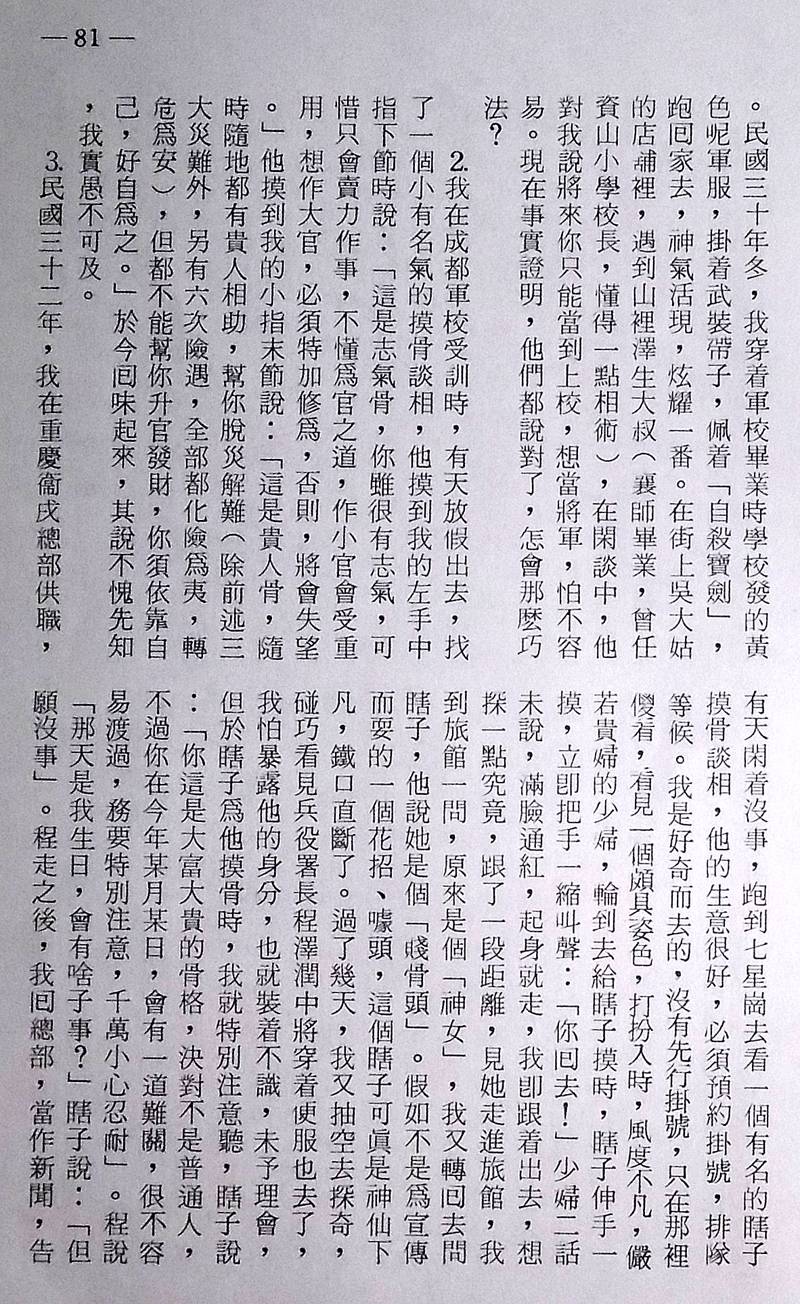 —81—
。民國三十年冬，我穿着軍校畢業時學校發的黃
色呢軍服，掛着武裝帶子，佩着「自殺寶劍」，
跑回家去，神氣活現，炫耀一番。在街上吳大姑
的店舖裡，遇到山裡澤生大叔（襄師畢業，曾任
資山小學校長，懂得一點相術），在閑談中，他
對我說將來你只能當到上校，想當將軍，怕不容
易。現在事實證明，他們都說對了，怎會那麼巧
法？
2.我在成都軍校受訓時，有天放假出去，找
了一個小有名氣的摸骨談相，他摸到我的左手中
指下節時說：「這是志氣骨，你雖很有志氣，可
惜只會賣力作事，不懂爲官之道，作小官會受重
用，想作大官，必須特加修爲，否則，將會失望
。」他摸到我的小指末節說：「這是貴人骨，隨
時隨地都有貴人相助，幫你脫災解難（除前述三
大災難外，另有六次險遇，全部都化險爲夷，轉
危爲安），但都不能幫你升官發財，你須依靠自
己，好自爲之。」於今回味起來，其說不愧先知
，我實愚不可及。
3.民國三十二年，我在重慶衞戍總部供職，
有天閑着沒事，跑到七星崗去看一個有名的瞎子
摸骨談相，他的生意很好，必須預約掛號，排隊
等候。我是好奇而去的，沒有先行掛號，只在那裡
傻着，看見一個頗具姿色，打扮入時，風度不凡，儼
若貴婦的少婦，輪到去給瞎子摸時，瞎子伸手一
摸，立卽把手一縮叫聲：「你回去！」少婦二話
未說，滿臉通紅，起身就走，我卽跟着出去，想
探一點究竟，跟了一段距離，見她走進旅館，我
到旅館一問，原來是個「神女」，我又轉回去問
瞎子，他說她是個「賤骨頭」。假如不是爲宣傳
而耍的一個花招、噱頭，這個瞎子可眞是神仙下
凡，鐵口直斷了。過了幾天，我又抽空去探奇，
碰巧看見兵役署長程澤潤中將穿着便服也去了，
我怕暴露他的身分，也就裝着不識，未予理會，
但於瞎子爲他摸骨時，我就特別注意聽，瞎子說
：「你這是大富大貴的骨格，決對不是普通人，
不過你在今年某月某日，會有一道難關，很不容
易渡過，務要特別注意，千萬小心忍耐」。程說
「那天是我生日，會有啥子事？」瞎子說：「但
願沒事」。程走之後，我回總部，當作新聞，告